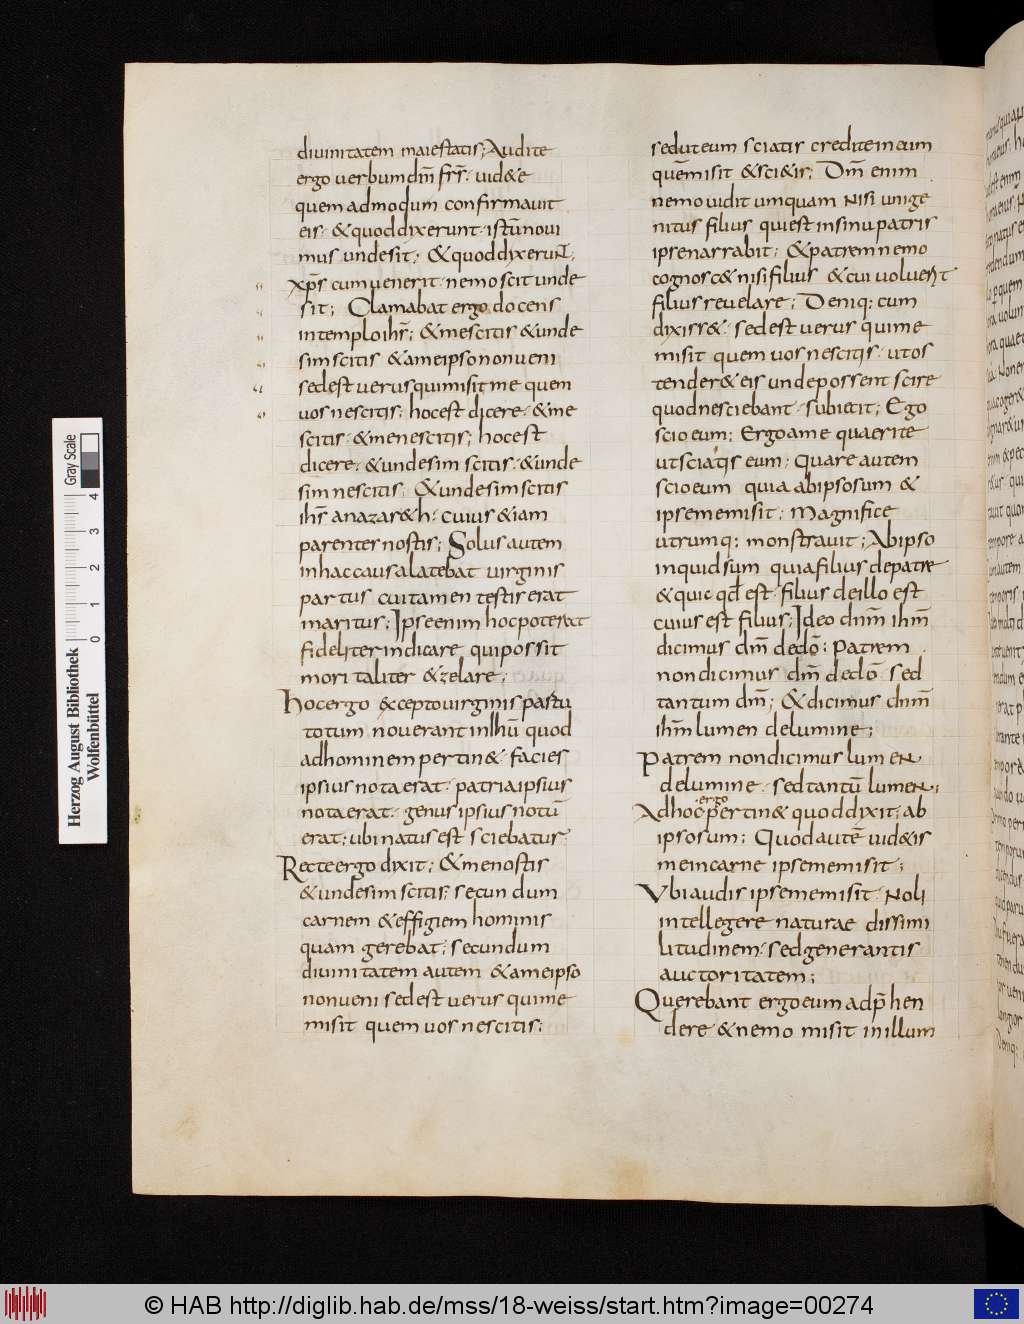 diuinitatem maiestatis; Audite
ergo uerbum dm̄ fr̄s· uid&e
quemadmodum confirmauit
eis· & quod dixerunt· istū noui
mus unde sit; & quod dixeruNT·
xp̄s cum uenerit· nemo scit unde
sit; Clamabat ergo docens
in templo ih̄s; & me scitis & unde
sim scitis & a me ipso non ueni
sed est uerus qui misit me quem
uos nescitis; hoc est dicere· & me
scitis· & me nescitis; hoc est
dicere· & unde sim scitis· & unde
sim nescitis; & unde sim scitis
ih̄s a nazar&h· cuius & iam
parentes nostis; Solus autem
in hac causa latebat uirginis
partus cui tamen testis erat
maritus; Ipse enim hoc poterat
fideliter indicare qui possit
moritaliter & zelare;
Hoc ergo excepto uirginis partu
totum nouerant in ihū quod
ad hominem pertin&· facies
ipsius nota erat· patria ipsius
nota erat· genus ipsius notū
erat; ubi natus est sciebatur·
Recte ergo dixit; & me nostis
& unde sim scitis; secundum
carnem & effigiem hominis
quam gerebat; secundum
diuinitatem autem & a me ipso
non ueni sed est uerus qui me
misit quem uos nescitis;
sed ut eum sciatis credite in eum
quē misit & sci&is; Dm̄ enim
nemo uidit umquam Nisi unige
nitus filius qui est in sinu patris
ipse narrabit; & patrem nemo
cognosc& nisi filius & cui uoluerit
filius reuelare; Deniq; cum
dixiss&· sed est uerus qui me
misit quem uos nescitis· ut os
tender& eis unde possent scire
quod nesciebant· subiecit; Ego
scio eum; Ergo a me quaerite
ut sciatis eum; Quare autem
scio eum quia ab ipso sum &
ipse me misit; Magnifice
utrumq; monstrauit; Ab ipso
inquid sum quia filius de patre
& quic qd est· filius de illo est
cuius est filius; Ideo dnm̄ ihm̄
dicimus dm̄ de dō; Patrem
non dicimus dm̄ de dō· sed
tantum dm̄; & dicimus dnm̄
ihm̄ lumen de lumine;
Patrem non dicimus lumeN
de lumine· sed tantū lumeN;
Ad hoc ergo pertin& quod dixit; ab
ipso sum; Quod autē uid&is
me in carne ipse me misit;
Vbi audis ipse me misit· Noli
intellegere naturae dissimi
litudinem· sed generantis
auctoritatem;
Querebant ergo eum adp̄hen
dere· & nemo misit in illum
Herzog August Bibliothek
Wolfenbüttel
0 1 2 3 4
Gray Scale
© HAB http://diglib.hab.de/mss/18-weiss/start.htm?image=00274